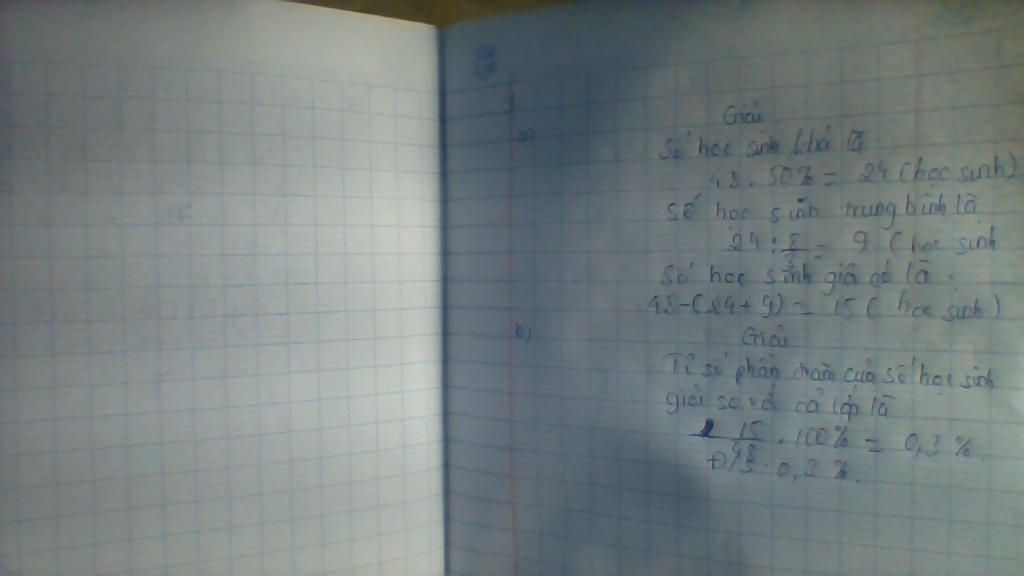 Giải
a)
Số học sinh khá là
48 . 50% = 24 (học sinh)
Số học sinh trung bình là
24 : 8/3 = 9 (học sinh
Số học sinh giỏi có là
48-(24+9) = 15 ( học sinh)
b)
Giải
Tỉ số phần trăm của số học sinh
giỏi so với cả lớp là
15/48 . 100% = 0,3 %.
0,3 %.